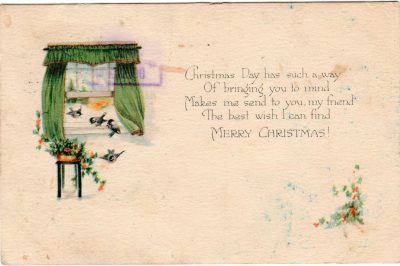 Christmas Day has such a way
Of bringing you to mind
Makes me send to you, my friend
The best wish I can find
MERRY CHRISTMAS!